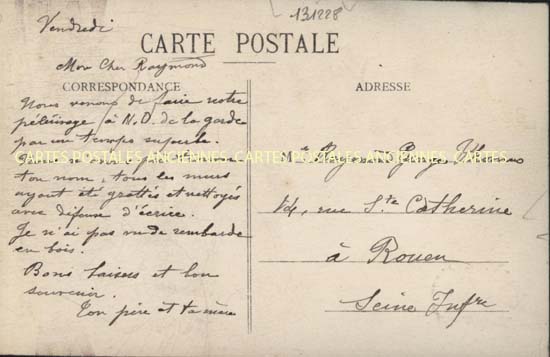 131228
Vendredi
CARTE POSTALE
Mon Cher Raymond
CORRESPONDANCE
Nous venons de faire notre
pèlerinage à N.D. de la garde
par un temps superbe.
ton nom, tous les murs
ayant été grattés et nettoyés
avec défense d'écrire.
Je n'ai pas vu de rembarde
en bois.
Bons baisers et bon
souvenir.
Ton père et ta mère
ADRESSE
rue Ste Catherine
à Rouen
Seine Infre
CARTES POSTALES ANCIENNES CARTES POSTALES ANCIENNES